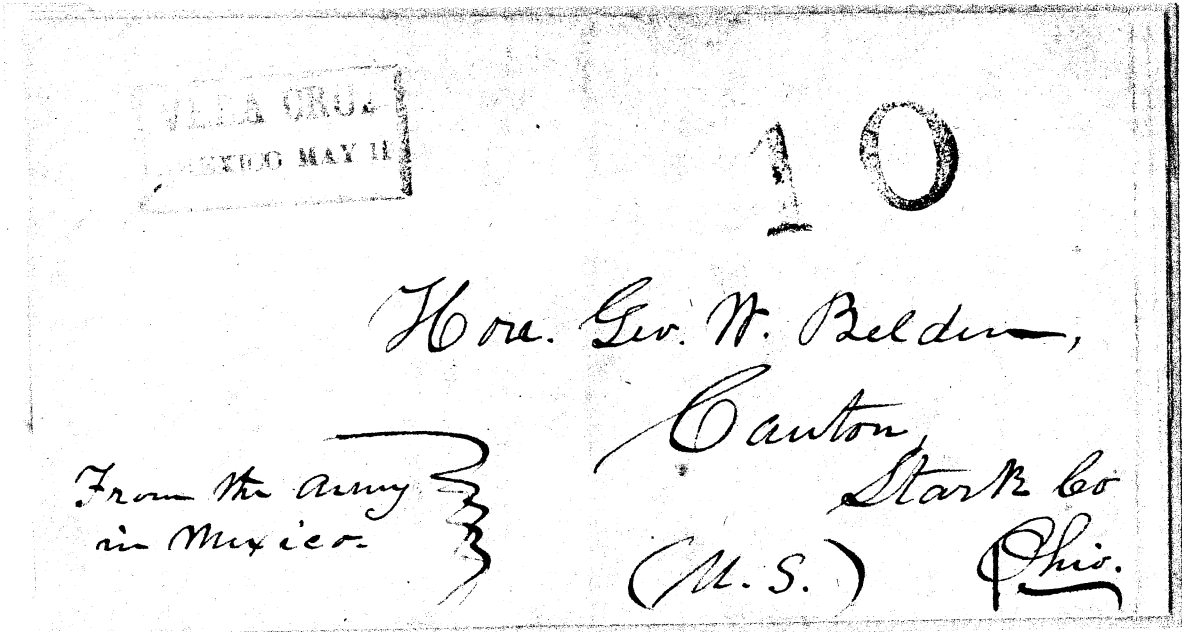 VERA CRUZ
MEXICO MAY 11
10
Hon. Geo. W. Belden,
Canton,
Stark Co
Ohio.
(U. S.)
From the Army
in Mexico.